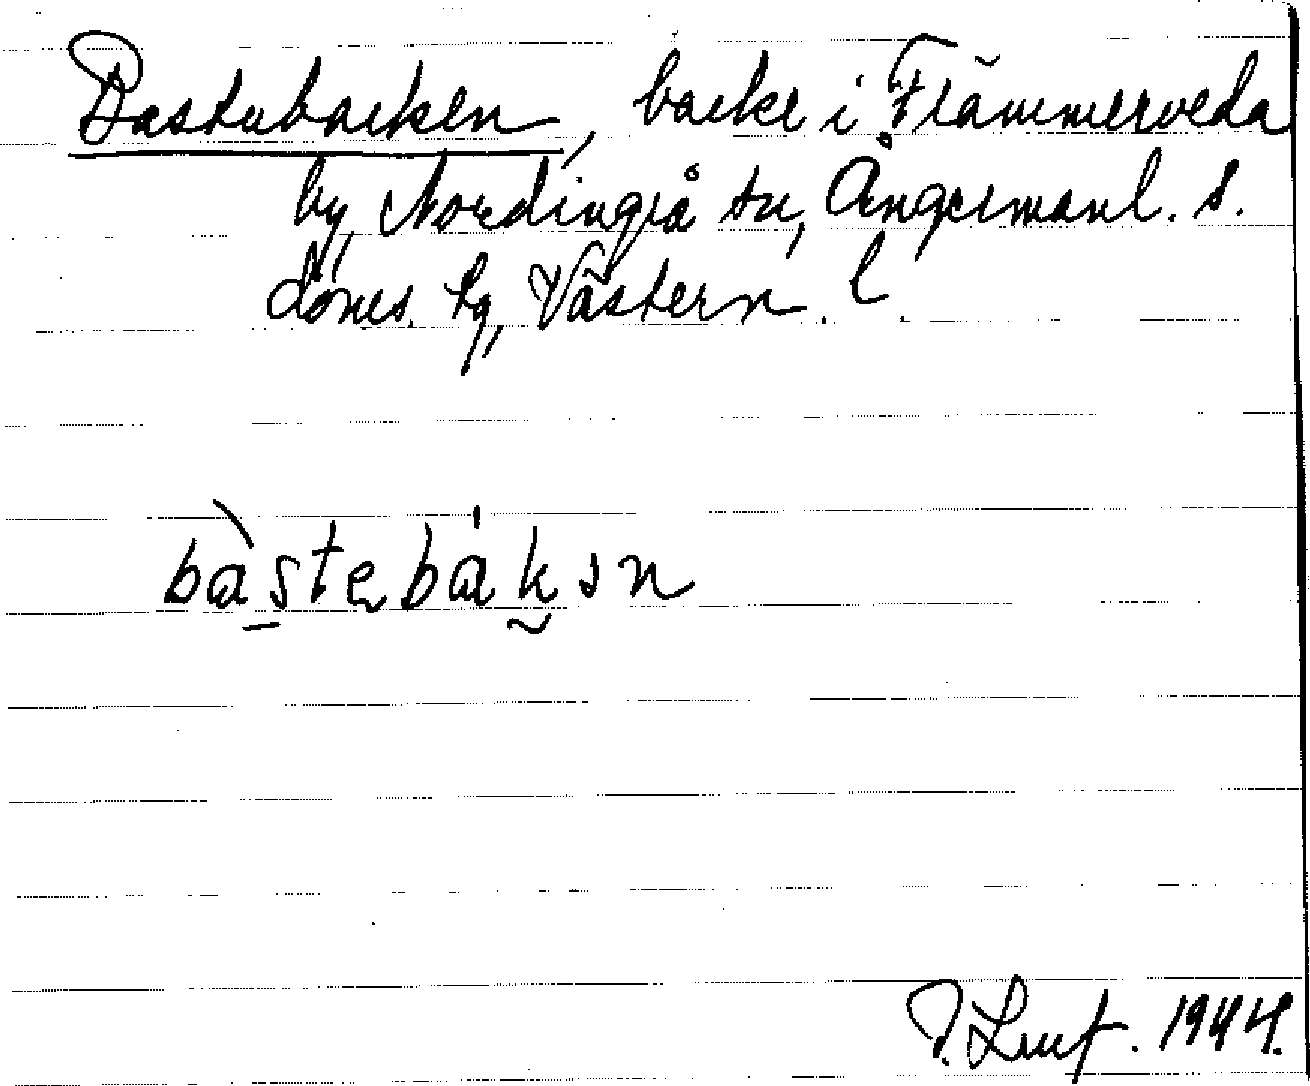 Bastubacken, backe i Flämmerveda
by, Nordingrå sn, Ångermanl. s.
doms. hg, Västern. l.
bàstebákən
1944.